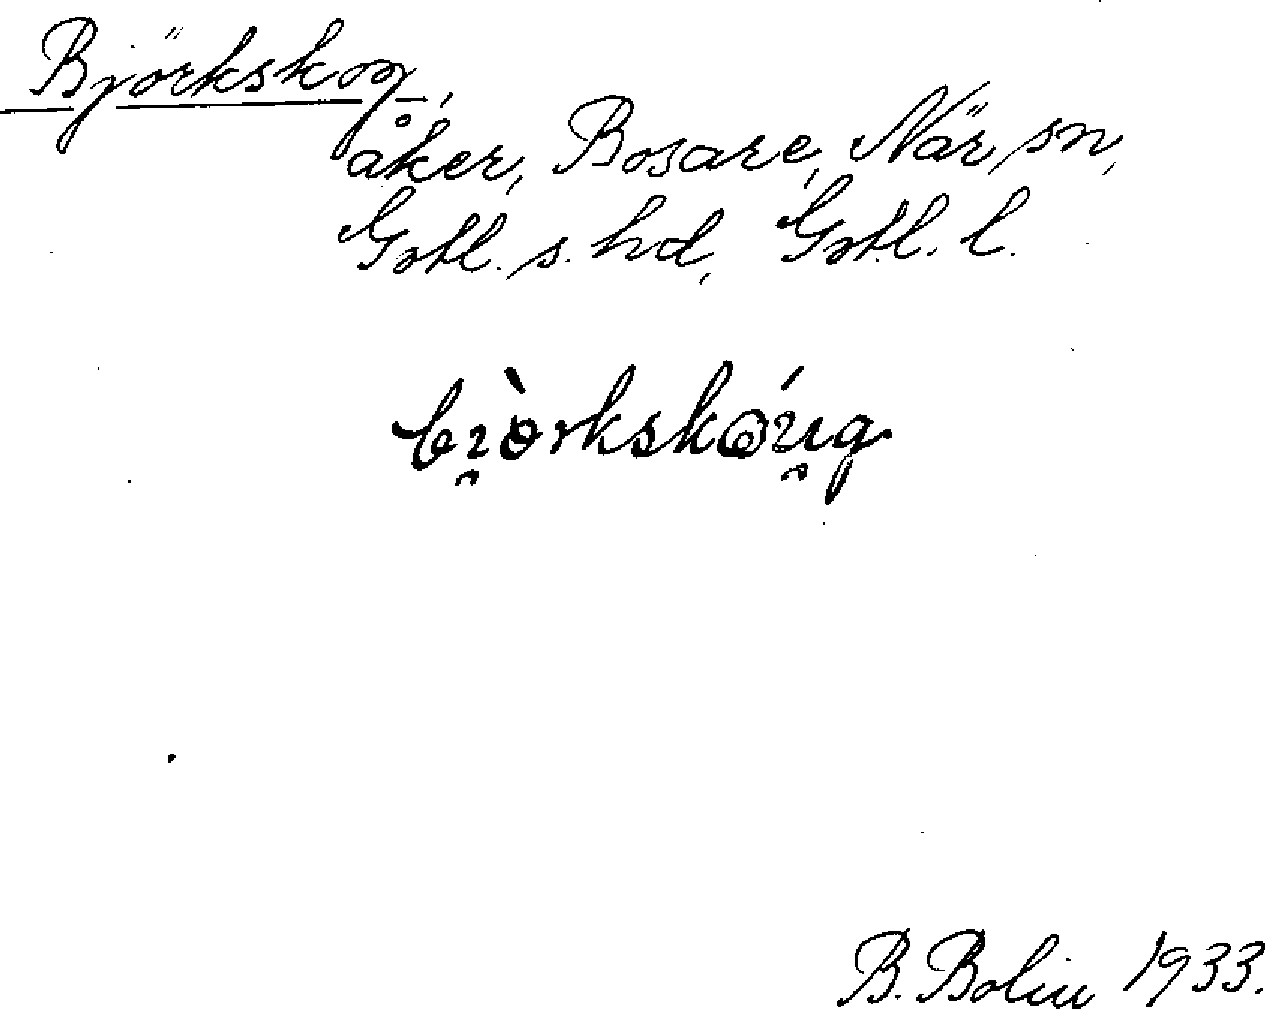 Björkskog,
åker, Bosare, När sn,
Gotl. s. hd, Gotl. l.
bi̯ò̀rkskǿu̯g.
B. Bolin 1933.